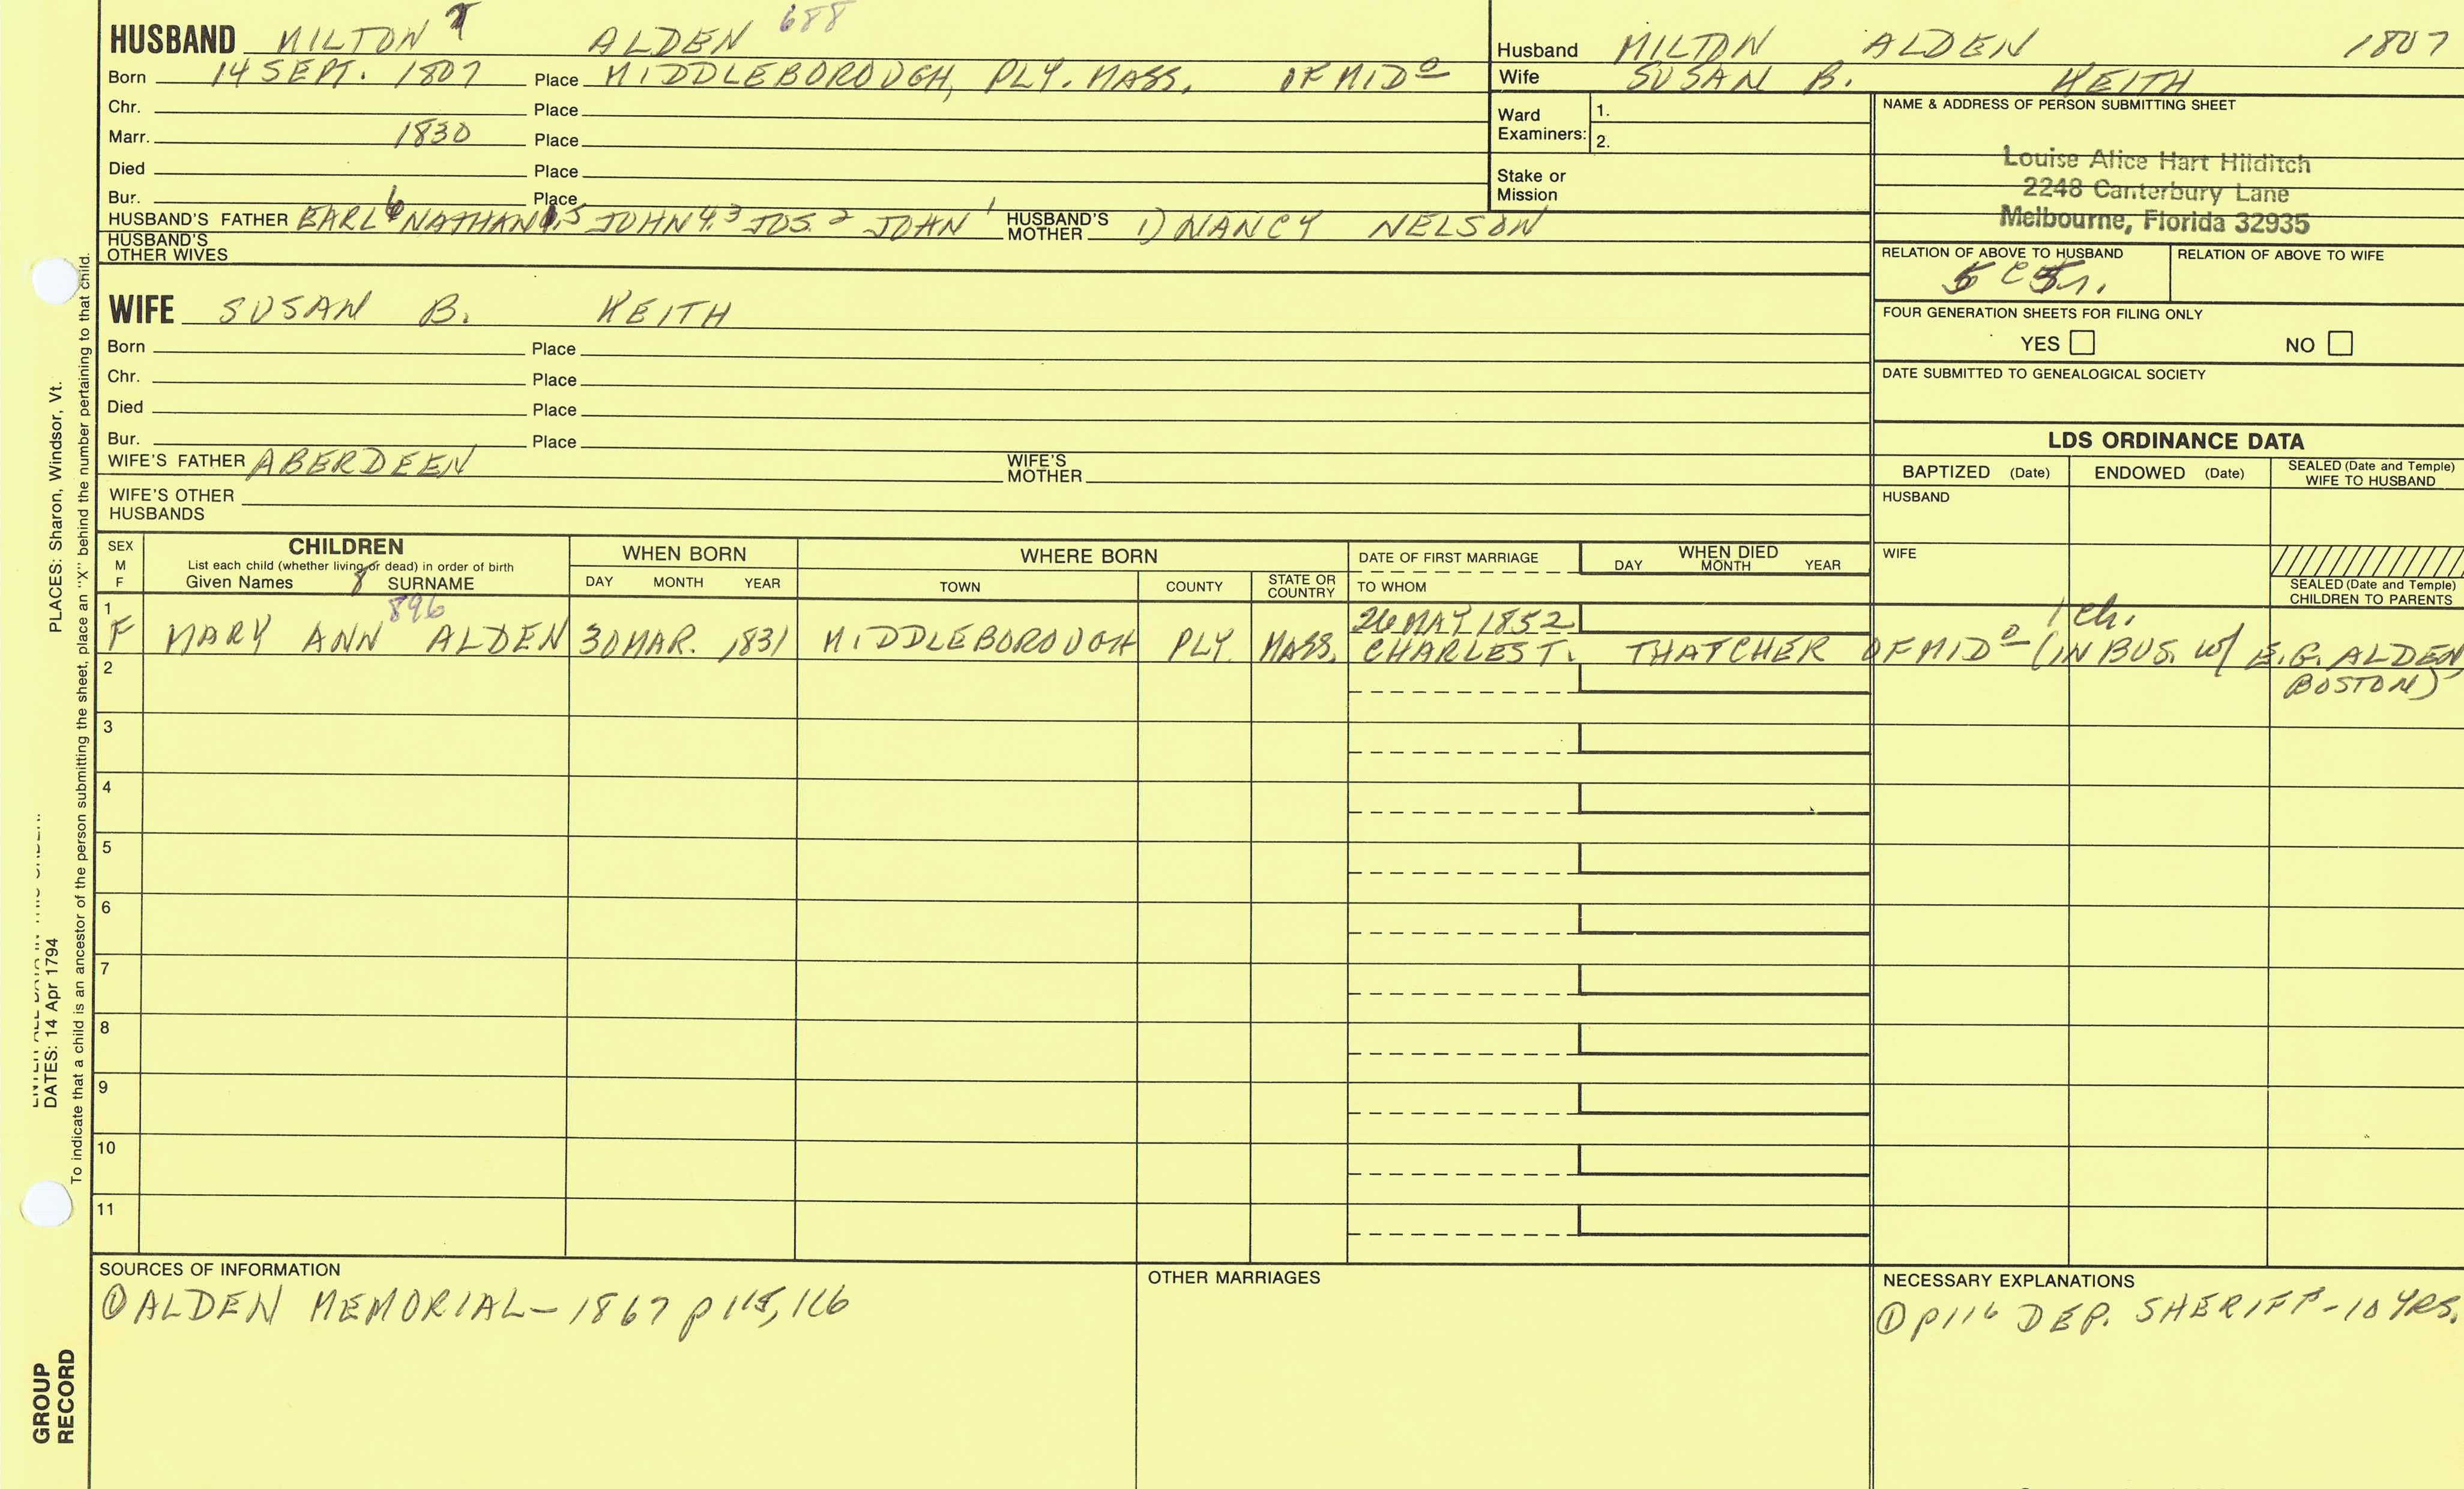 HUSBAND MILTON 7 ALDEN 688
Born 14 SEPT. 1807 Place MIDDLEBOROUGH, PLY. MASS. OF MIDº
Chr. Place
Marr. 1830 Place
Died Place
Bur. Place
HUSBAND'S FATHER EARL 6 NATHAN 5 JOHN 4.3 JOS. 2 JOHN 1 HUSBAND'S MOTHER 1) NANCY NELSON
HUSBAND'S OTHER WIVES
Husband MILTON ALDEN 1807
Wife SUSAN B. KEITH
Ward Examiners: 1.
2.
Stake or Mission
NAME & ADDRESS OF PERSON SUBMITTING SHEET
Louise Alice Hart Hilditch
2248 Canterbury Lane
Melbourne, Florida 32935
RELATION OF ABOVE TO HUSBAND RELATION OF ABOVE TO WIFE
FOUR GENERATION SHEETS FOR FILING ONLY
YES NO
DATE SUBMITTED TO GENEALOGICAL SOCIETY
WIFE SUSAN B. KEITH
Born Place
Chr. Place
Died Place
Bur. Place
WIFE'S FATHER ABERDEEN WIFE'S MOTHER
WIFE'S OTHER HUSBANDS
LDS ORDINANCE DATA
BAPTIZED (Date) ENDOWED (Date) SEALED (Date and Temple) WIFE TO HUSBAND
HUSBAND
WIFE
SEALED (Date and Temple) CHILDREN TO PARENTS
SEX M F
CHILDREN
List each child (whether living or dead) in order of birth
Given Names 8 SURNAME
WHEN BORN
DAY MONTH YEAR
WHERE BORN
TOWN COUNTY STATE OR COUNTRY
DATE OF FIRST MARRIAGE
TO WHOM
WHEN DIED
DAY MONTH YEAR
1 896 26 MAY 1852 1 ch.
F MARY ANN ALDEN 30 MAR. 1831 MIDDLEBOROUGH PLY. MASS. CHARLES T. THATCHER OF MIDº (IN BUS. W/ E.G. ALDEN,
BOSTON)
2
3
4
5
6
7
8
9
10
11
SOURCES OF INFORMATION
① ALDEN MEMORIAL - 1867 p 115, 116
OTHER MARRIAGES
NECESSARY EXPLANATIONS
① p116 DEP. SHERIFF - 10 YRS.
PLACES: Sharon, Windsor, Vt.
DATES: 14 Apr 1794
To indicate that a child is an ancestor of the person submitting the sheet, place an "X" behind the number pertaining to that child.
GROUP
RECORD